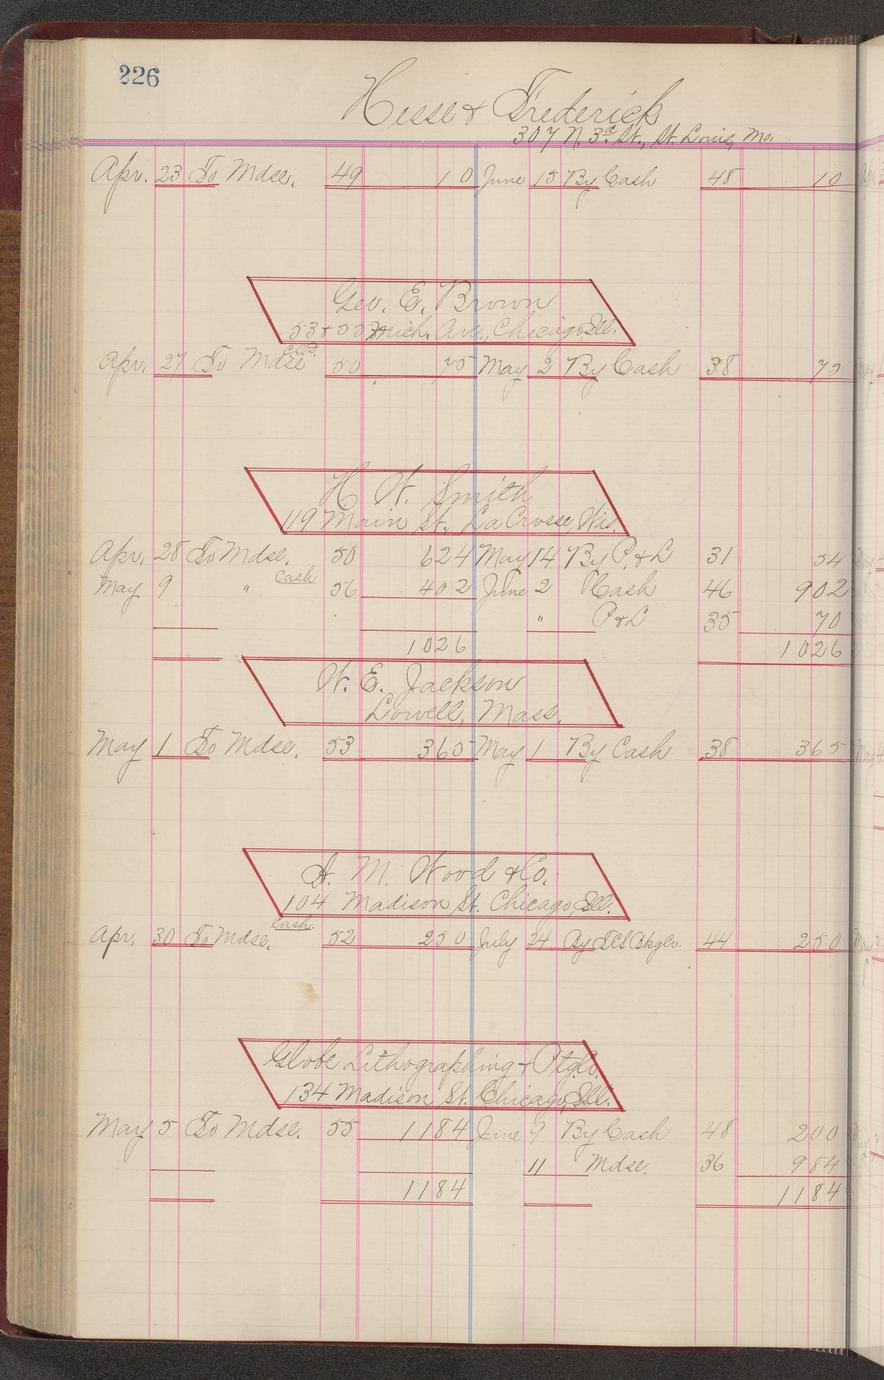 226
Hesse & Frederick
307 N. 3rd St., St. Louis, Mo.
Apr. 23 To Mdse. 49 10 June 15 By Cash 48 10
Geo. E. Brown
Mich. Ave., Chicago, Ill.
C.O.D.
Apr. 27 To Mdse 50 75 May 2 By Cash 38 75
H. W. Smith
119 Main St. La Crosse, Wis.
Apr. 28 To Mdse. 50 624 May 14 By P. & L 31 54
Cash
May 9 " 56 402 June 2 Cash 46 902
" P & L 35 70
1026 1026
W. E. Jackson
Lowell, Mass.
May 1 To Mdse. 53 365 May 1 By Cash 38 365
A. M. Wood & Co.
104 Madison St. Chicago, Ill.
Cash.
Apr. 30 To Mdse. 52 250 July 24 By 44 250
Globe Lithographing & Ptg. Co.
134 Madison St. Chicago, Ill.
May 5 To Mdse. 55 1184 June 9 By Cash 48 200
11 Mdse. 36 984
1184 1184